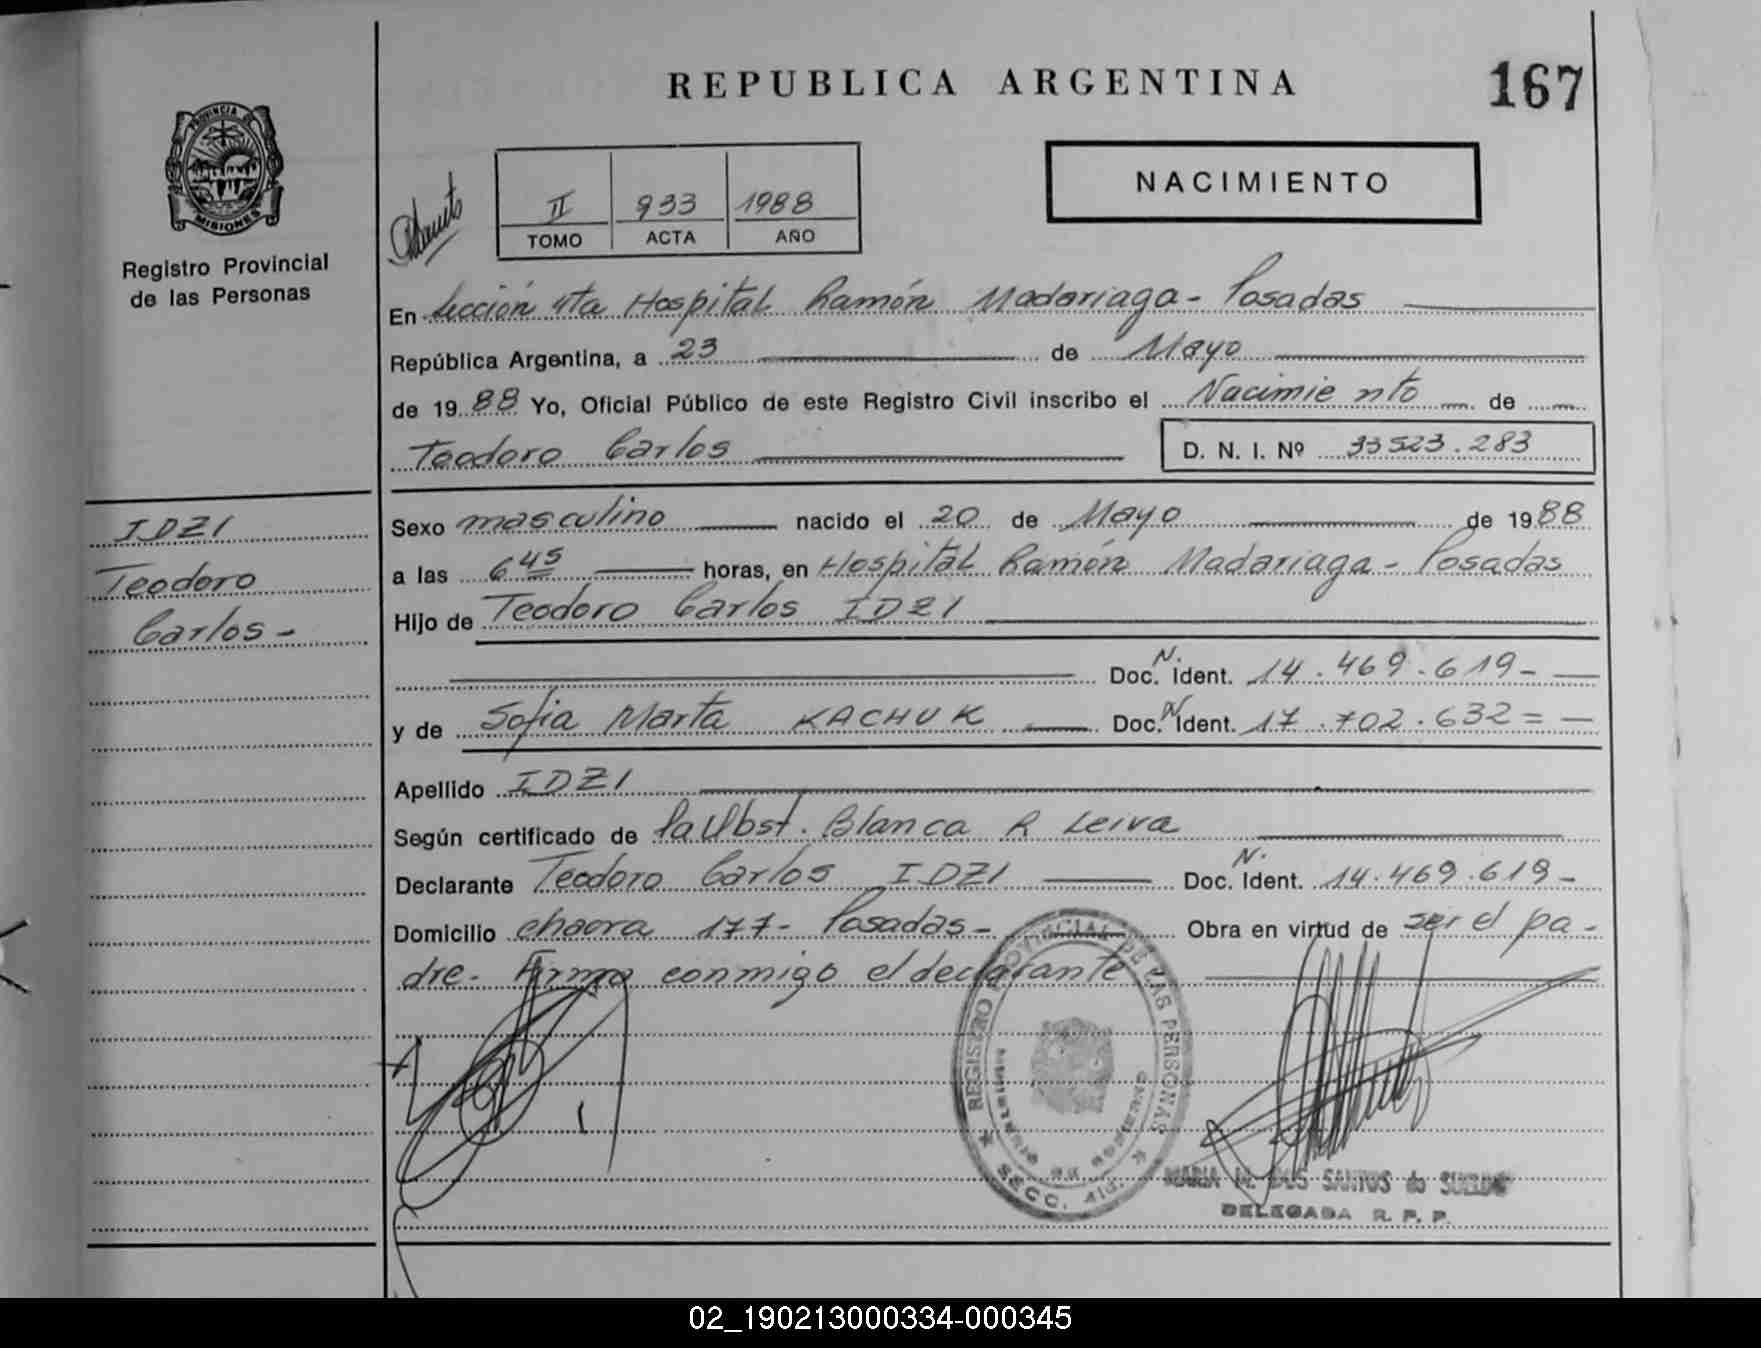 REPUBLICA ARGENTINA
167
PROVINCIA DE
MISIONES
Registro Provincial
de las Personas
II 933 1988
TOMO ACTA AÑO
NACIMIENTO
En Sección 4ta Hospital Ramón Madariaga - Posadas
República Argentina, a 23 de Mayo
de 1988 Yo, Oficial Público de este Registro Civil inscribo el Nacimiento de
Teodoro Carlos
D. N. I. Nº 33523.283
IDZI
Teodoro
Carlos -
Sexo masculino nacido el 20 de Mayo de 1988
a las 6 45 horas, en Hospital Ramón Madariaga - Posadas
Hijo de Teodoro Carlos IDZI
Doc. N. Ident. 14.469.619 -
y de Sofia Marta KACHUK Doc. N Ident. 17.702.632 =
Apellido IDZI
Según certificado de la Obst. Blanca R Leiva
Declarante Teodoro Carlos IDZI Doc. N. Ident. 14.469.619 -
Domicilio chacra 177 - Posadas - Obra en virtud de ser el pa -
dre - Firma conmigo el declarante
REGISTRO PROVINCIAL DE LAS PERSONAS
SECC. 4ta.
MARIA M. DOS SANTOS de
DELEGADA R. P. P.
02_190213000334-000345